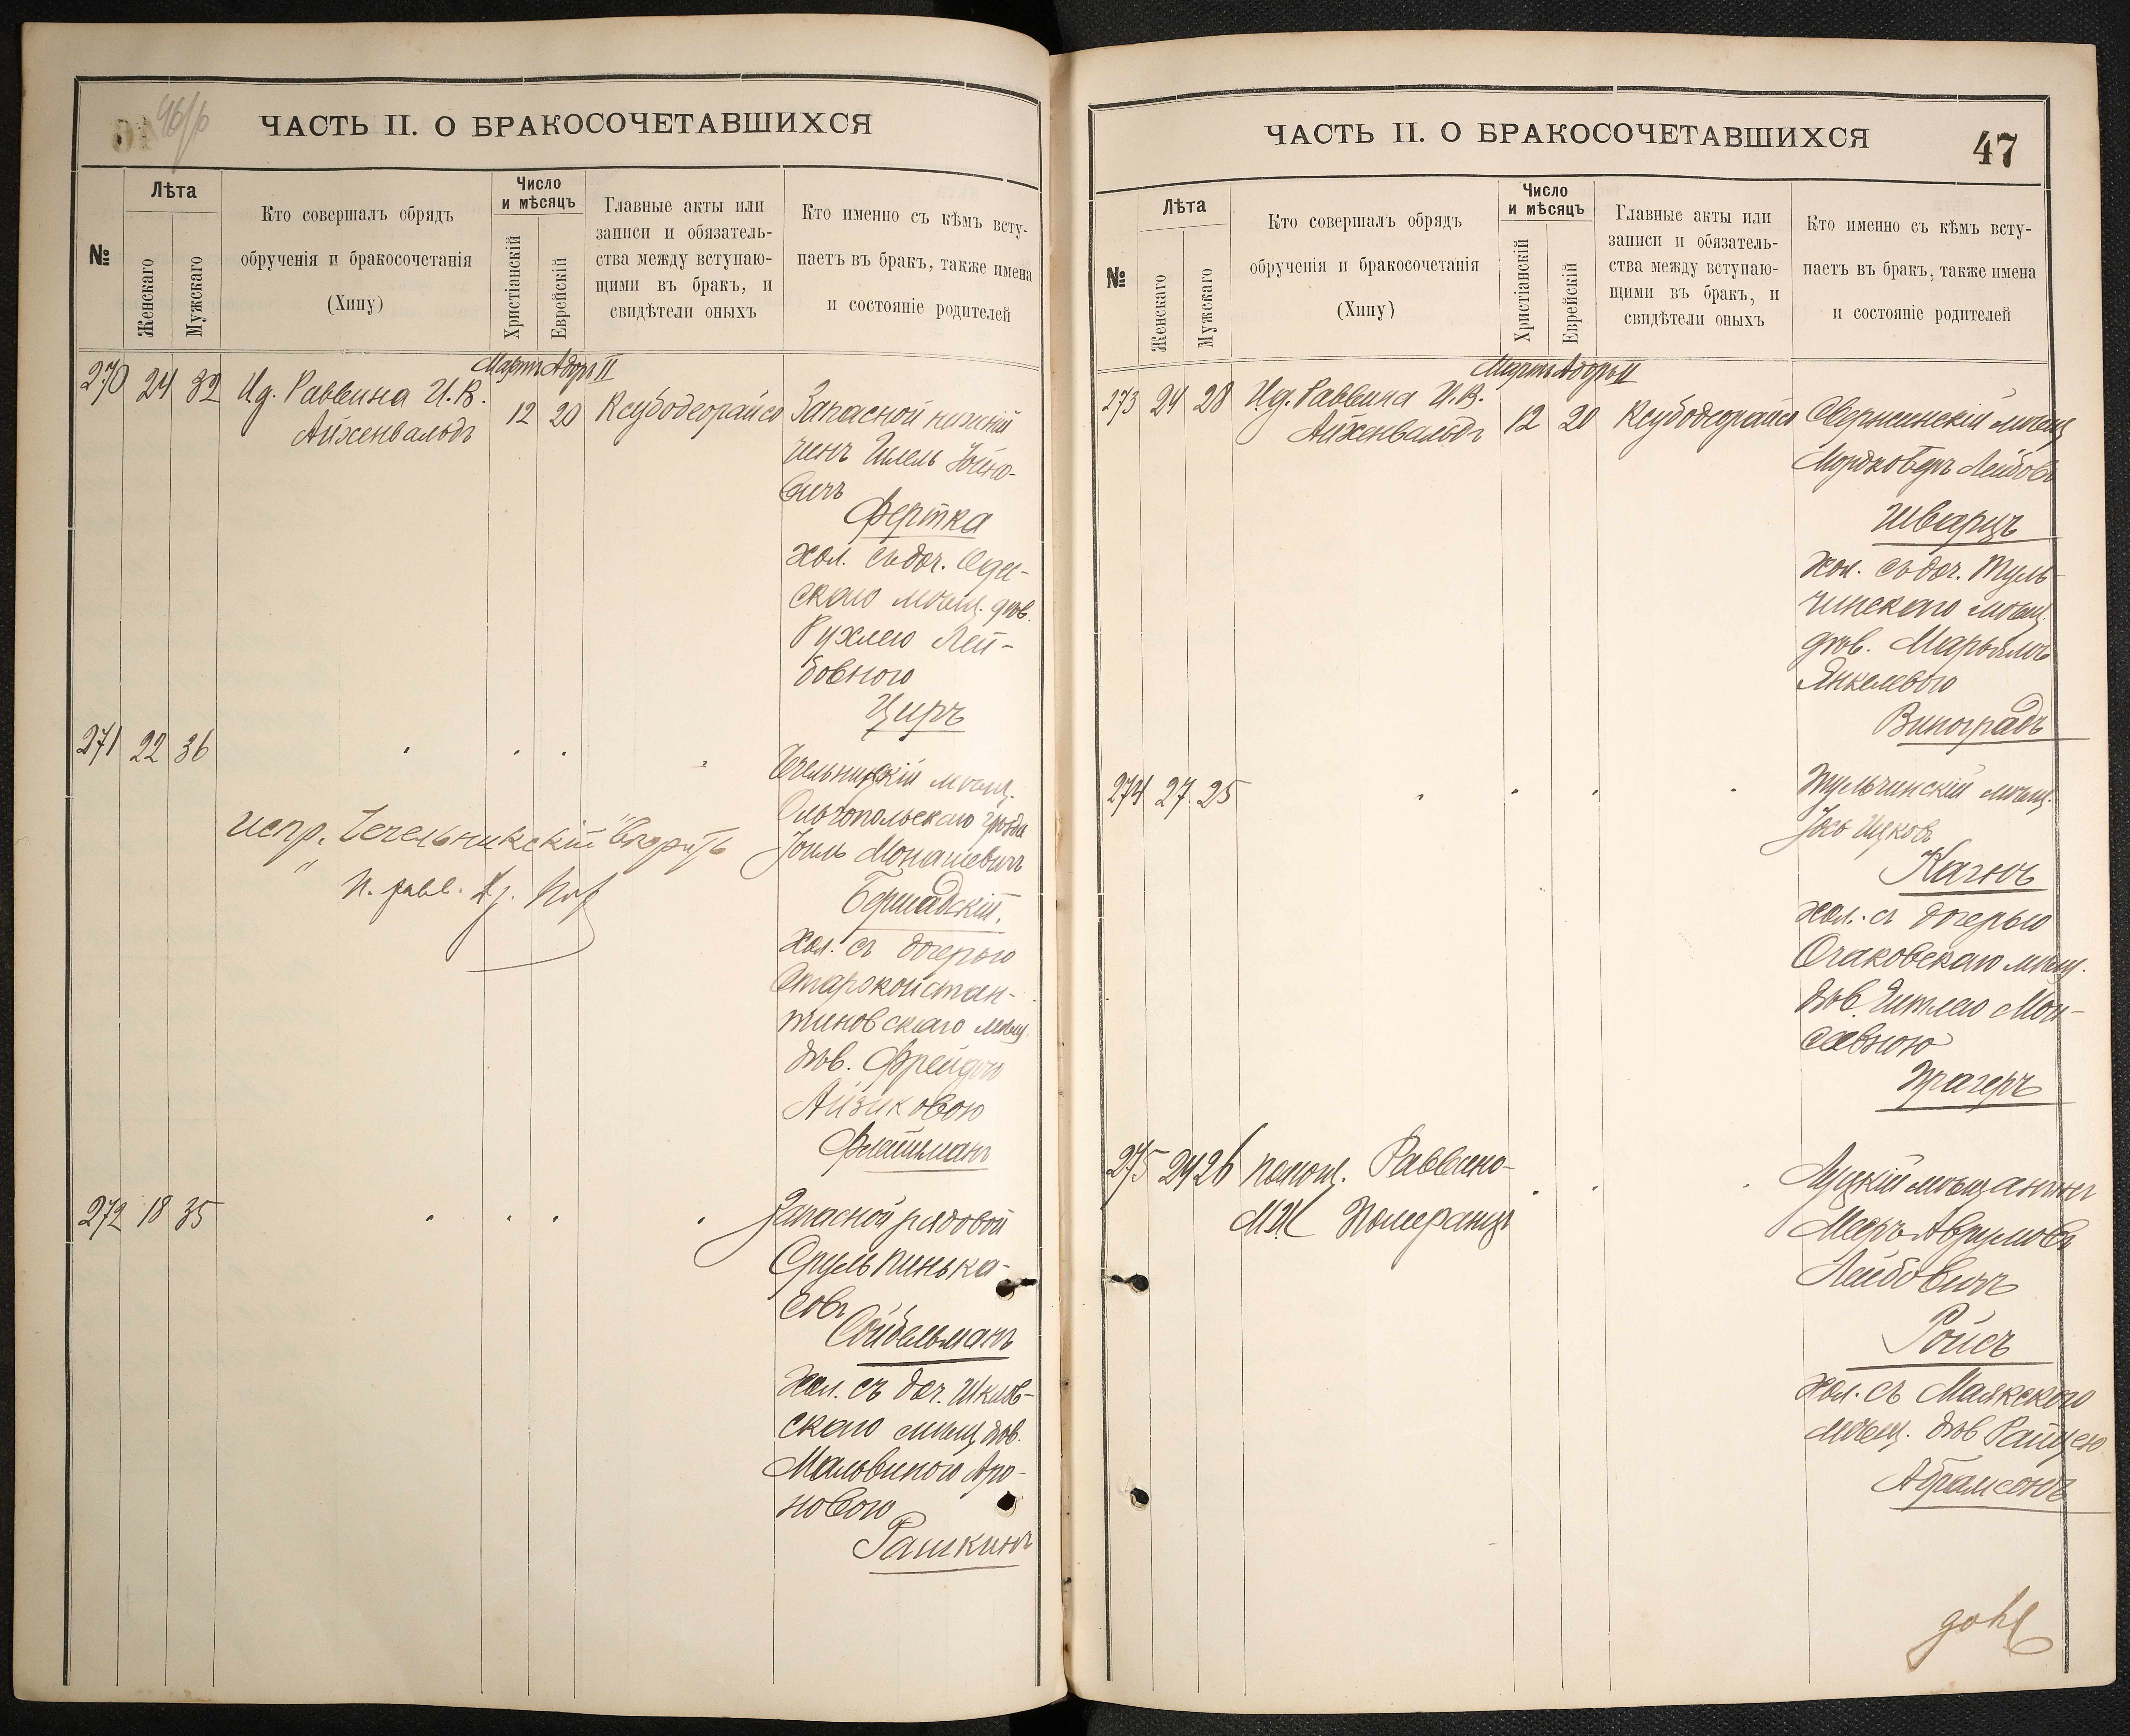 46/б
ЧАСТЬ II. О БРАКОСОЧЕТАВШИХСЯ
№
Лѣта
Женскаго
Мужскаго
Кто совершалъ обрядъ
обрученія и бракосочетанія
(Хипу)
Число
и мѣсяцъ
Христіанскій
Еврейскій
Главные акты или
записи и обязатель-
ства между вступаю-
щими въ бракъ, и
свидѣтели оныхъ
Кто именно съ кѣмъ всту-
паетъ въ бракъ, также имена
и состояніе родителей
Мартъ Адоръ II
270 24 32 Ид. Раввина И. В.
Айхенвальдъ
12 20 Ксубодеорайсо
Запасной нижній
чинъ Гилель Іойно-
вичъ
Фертка
хол. съ доч. Одес-
скаго мѣщ. дѣв.
Рухлею Лей-
бовною
Циръ
271 22 36
Чечельницкій мѣщ.
Ольгопольскаго уѣзда
Іоиль Монашевичъ
Бершадскій.
хол. съ дочерью
Староконстан-
тиновскаго мѣщ.
дѣв. Фрейдою
Айзиковою
Флейшманъ
испр. "Чечельникскій" вѣрить
И. равв.
272 18 35
Запасной рядовой
Сруль Пинька-
совъ
Сойбельманъ
Хол. съ доч. Шклов-
скаго мѣщ. дѣв.
Мальвиною Аро-
новою
Рашкинъ
ЧАСТЬ II. О БРАКОСОЧЕТАВШИХСЯ
47
№
Лѣта
Женскаго
Мужскаго
Кто совершалъ обрядъ
обрученія и бракосочетанія
(Хипу)
Число
и мѣсяцъ
Христіанскій
Еврейскій
Главные акты или
записи и обязатель-
ства между вступаю-
щими въ бракъ, и
свидѣтели оныхъ
Кто именно съ кѣмъ всту-
паетъ въ бракъ, также имена
и состояніе родителей
Мартъ Адоръ II
273 24 28 Ид. Раввина И. В.
Айхенвальдъ
12 20 Ксубодеорайсо
Свержненскій мѣщ.
Мордко Беръ Лейбовъ
Шварцъ
хол. съ доч. Туль-
чинскаго мѣщ.
дѣв. Марьямъ
Янкелевою
Виноградъ
274 27 25
Тульчинскій мѣщ.
Іось Ицковъ
Качюъ
хол. съ дочерью
Очаковскаго мѣщ.
дѣв. Гитлею Мои-
сѣевною
Трагеръ
275 24 26 помощ. Раввина
М. И. Померанцъ
Луцкій мѣщанинъ
Мееръ Аврумовъ
Лейбовичъ
Ройсъ
хол. съ Маякскою
мѣщ. дѣв Райцею
Абрамсонъ